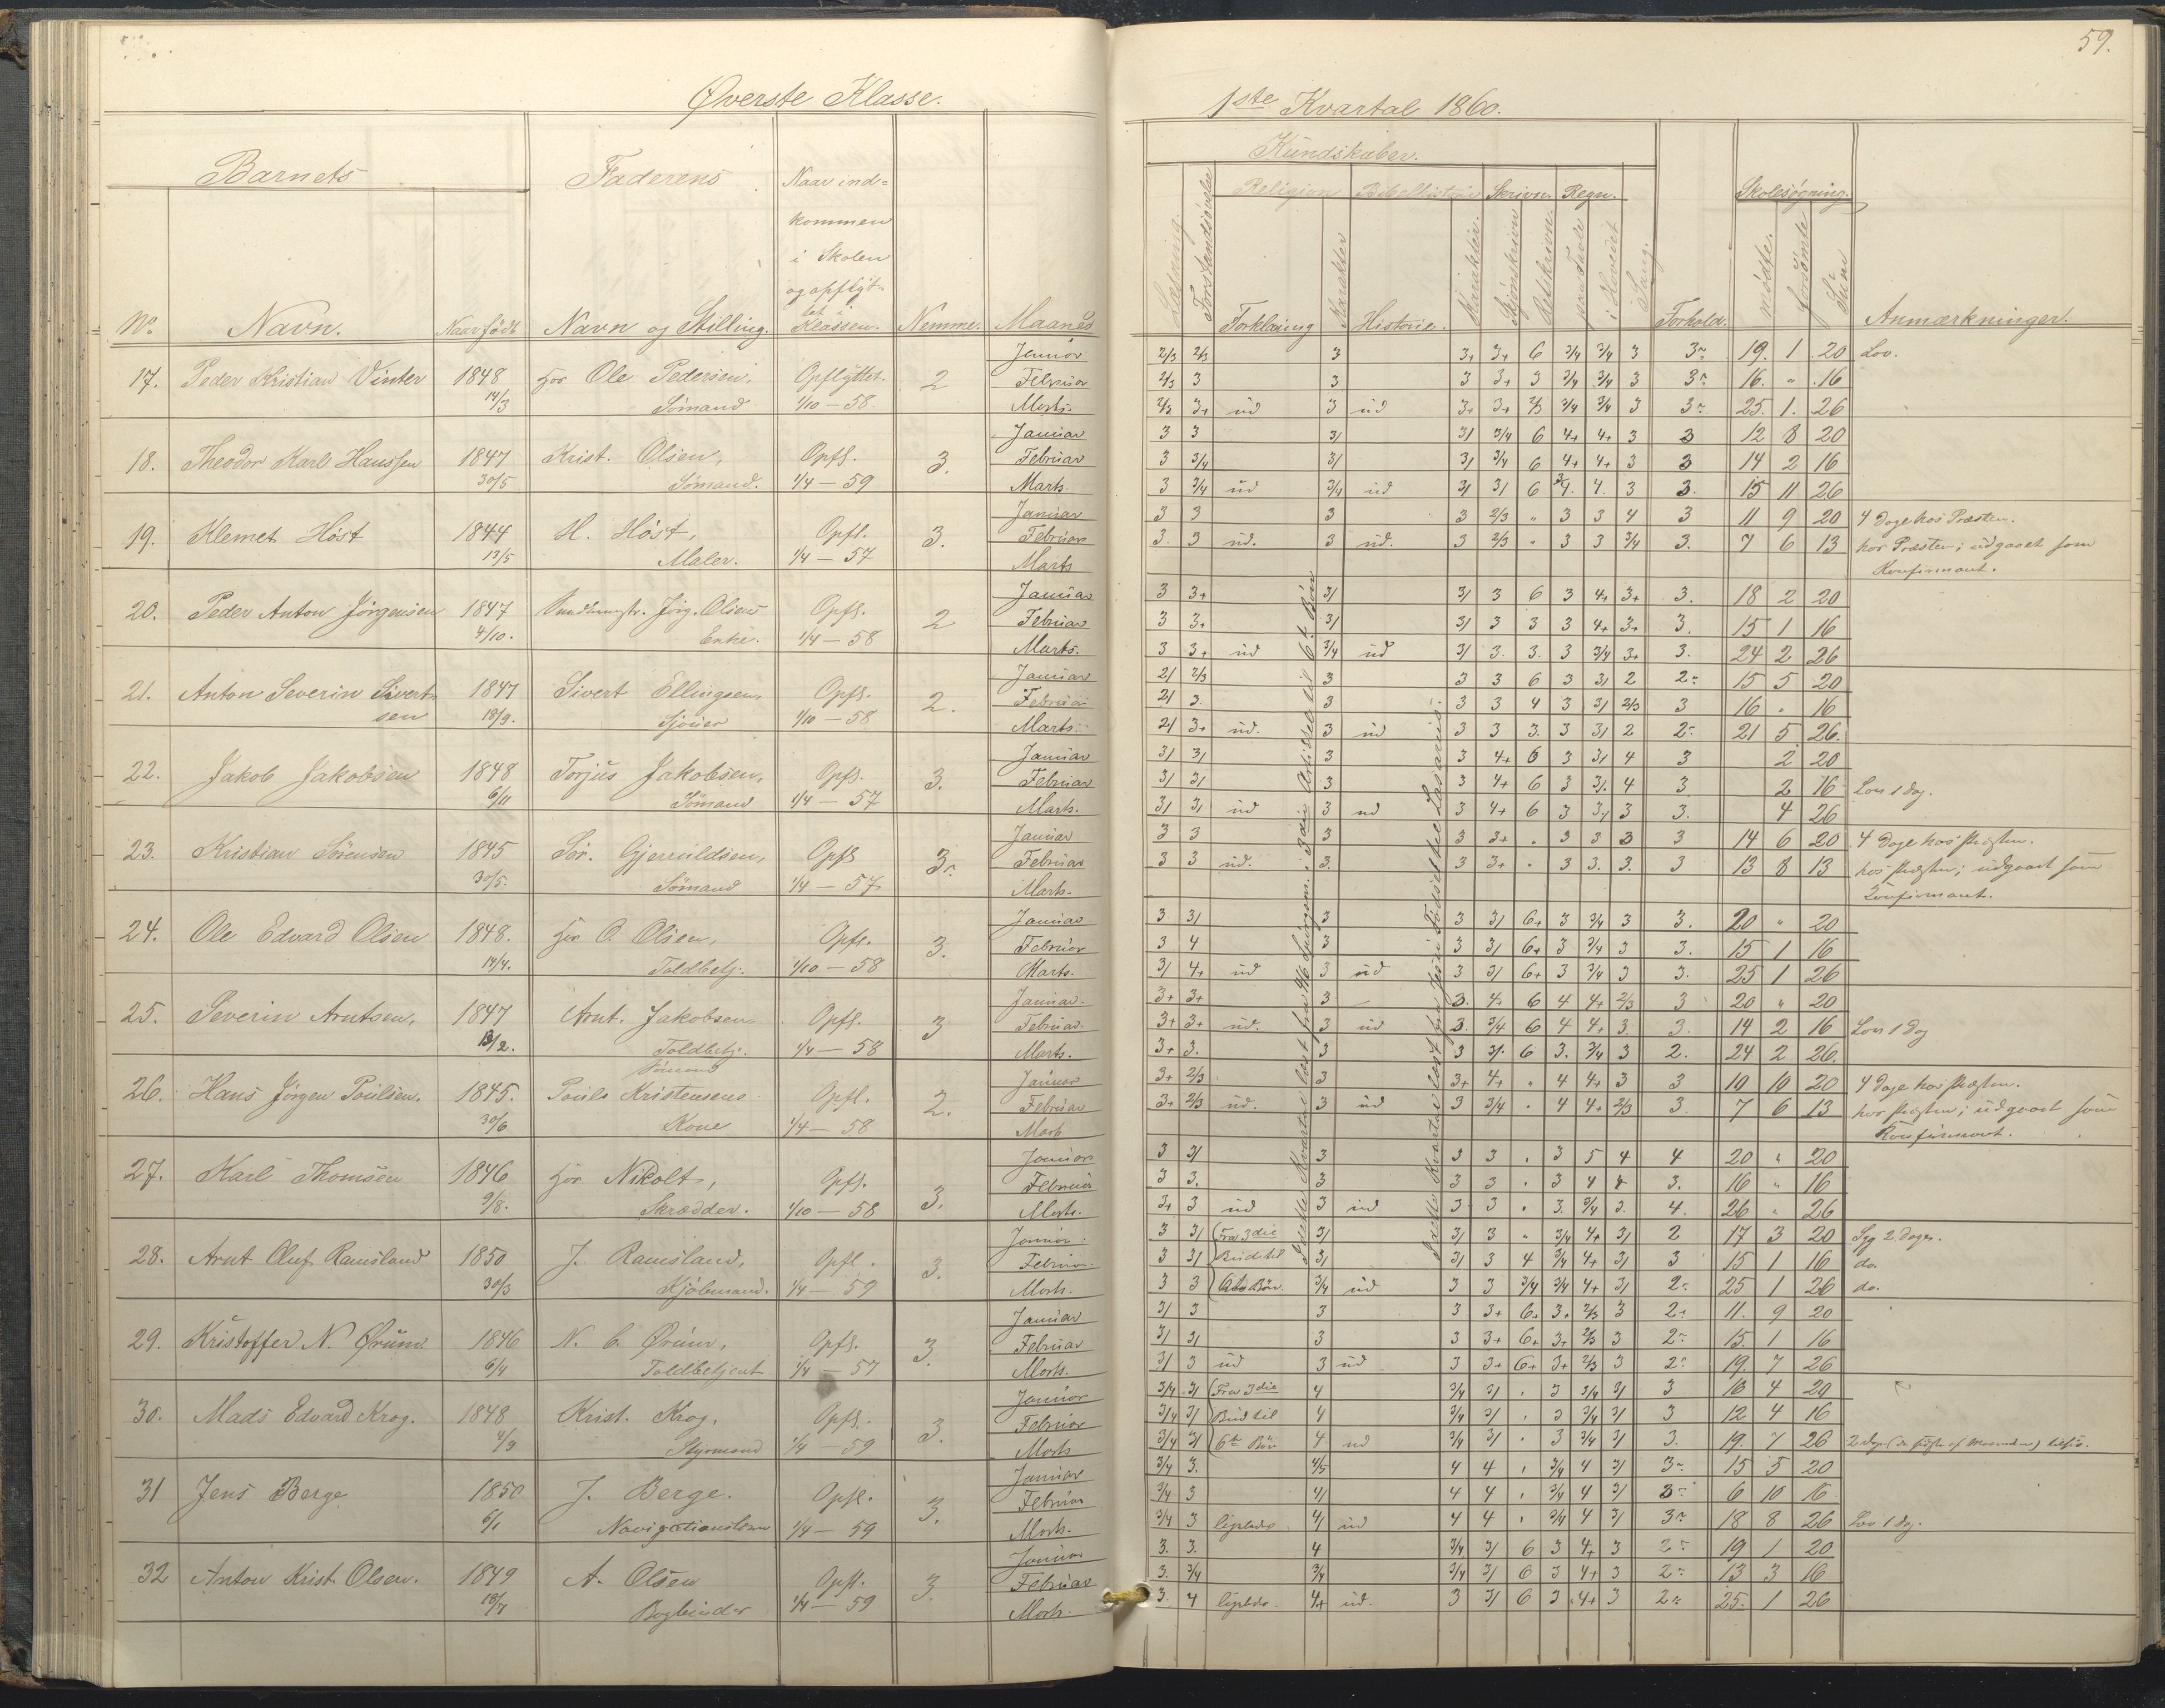 59.
Øverste Klasse.
1ste Kvartal 1860.
Barnets
Faderens
Naar ind-
kommen
i Skolen
og opflyt-
tet i
Klassen.
No
Navn.
Naar født
Navn og Stilling.
Nemme.
Maaned
Kundskaber.
Religion
Bibelhistorie
Skrivn.
Regn.
Skolesøgning.
Læsning.
Forstandsøvelse
Forklaring
Karakter
Historie.
Karakter.
Skjønskrivn
Retskrivn.
paa Tavle
i Hovedet
Sang.
Forhold.
mødte.
forsømte
Anmærkninger.
17. Peder Kristian Vinter 1848 14/3 hos Ole Pedersen, Sømand Opflyttet. 1/10 – 58. 2
Januar 2/3 2/3 3 3+ 3+ 6 3/4 3/4 3 3÷ 19. 1 20 Lov.
Februar 2/3 3 3 3 3+ 3 3/4 3/4 3 3÷ 16. " 16
Marts. 2/3 3+ ud 3 ud 3+ 3+ 2/3 3/4 3/4 3 3÷ 25. 1. 26
18. Theodor Karl Hanssen 1847 30/5 Krist. Olsen, Sømand. Opfl. 1/4 – 59 3.
Januar 3 3 3/ 3/ 3/4 6 4+ 4+ 3 3 12 8 20
Februar 3 3/4 3/ 3/ 3/4 6 4+ 4+ 3 3 14 2 16
Marts. 3 3/4 ud 3/4 ud 3/ 3/ 6 4. 3 3. 15 11 26
19. Klemet Høst 1844 13/5 H. Høst, Maler. Opfl. 1/4 – 57 3.
Januar 3 3 3 3 2/3 " 3 3 4 3 11 9 20 4 Dage hos Præsten.
Februar 3. 3 ud. 3 ud. 3 2/3 " 3 3 3/4 3. 7 6 13 hos Præsten; udgaaet som
Marts Konfirmant.
20. Peder Anton Jørgensen 1847 4/10. Jørg. Olsens Enke. Opfl. 1/4 – 58 2
Januar 3 3+ 3/ 3/ 3 6 3 4+ 3+ 3. 18 2 20
Februar 3 3+ 3/ 3/ 3 3 3 4+ 3+ 3. 15 1 16
Marts. 3 3+ ud 3/4 ud 3/ 3. 3. 3 3/4 3+ 3. 24 2 26
21. Anton Severin Sivertsen 1847 18/9. Sivert Ellingsen, Sjouer Opfl. 1/10 – 58 2.
Januar 2/ 2/3 3 3 3 6 3 3/ 2 2÷ 15 5 20
Februar 2/ 3. 3 3 3 4 3 3/ 2/3 3 16 " 16
Marts. 2/ 3+ ud. 3 ud 3 3 3. 3 3/ 2 2÷ 21 5 26.
22. Jakob Jakobsen 1848 6/11 Torjus Jakobsen, Sømand Opfl. 1/4 – 57 3.
Januar 3/ 3/ 3 3 4+ 6 3 3/ 4 3 2 20
Februar 3/ 3/ 3 3 4+ 6 3 3/ 4 3 2 16 Lov 1 Dag.
Marts. 3/ 3/ ud 3 ud 3 4+ 6 3 3/ 3 3. 4 26
23. Kristian Sørensen 1845 30/5. Sør. Gjerruldsen, Sømand Opfl 1/4 – 57 3÷
Januar 3 3 3 3 3+ " 3 3 3 3 14 6 20 4 Dage hos Præsten.
Februar 3 3 ud. 3. 3 3+ " 3 3. 3. 3 13 8 13 hos Præsten; udgaaet som
Marts. Konfirmant.
24. Ole Edvard Olsen 1848. 14/4. hos O. Olsen, Toldbetj. Opfl. 1/10 – 58 3.
Januar 3 3/ 3 3 3/ 6+ 3 3/4 3 3. 20 " 20
Februar 3 4 3 3 3/ 6+ 3 3/4 3 3. 15 1 16
Marts. 3/ 4+ ud 3 ud 3 3/ 6+ 3 3/4 3 3. 25 1 26
25. Severin Arntsen. 1847 Arnt. Jakobsen Toldbetj. Opfl. 1/4 – 58 3
Januar. 3+ 3+ 3 3. 4+ 6 4 4+ 2/3 3 20 " 20
Februar. 3+ 3+ ud. 3 ud 3. 3/4 6 4 4+ 3. 3. 14 2 16 Lov 1 Dag
Marts. 3+ 3. 3 3 3/. 6 3. 3/4 3 2. 24 2 26.
26. Hans Jørgen Poulsen. 1845. 30/6 Sømand Pouls Kristensens Kone Opfl. 1/4 – 58 2.
Januar 3+ 2/3 3 3+ 4+ " 4 4+ 3 3 10 10 20 4 Dage hos Præsten.
Februar 3+ 2/3 ud. 3 ud 3 3/4 " 4 4+ 2/3 3. 7 6 13 hos Præsten; udgaaet som
Marts Konfirmant.
27. Karl Thomsen 1846 9/8. hos Nikolt, Skrædder. Opfl. 1/10 – 58 3.
Januar 3 3/ 3 3 3 " 3 5 4 4 20 " 20
Februar 3 3. 3 3 3 " 3 4 4 3. 16 " 16
Marts. 3+ 3 ud 3 ud 3 3 " 3. 3/4 3. 4. 26 " 26
28. Arnt Oluf Ramsland 1850 30/3 J. Ramsland, Kjøbmand. Opfl. 1/4 – 59 3.
Januar. 3 3/ Fra 3die 3/ 3/ 3 " 3/4 4+ 3/ 2 17 3 20 Syg 2 Dage.
Februar. 3 3/ Bud til 3/ 3/ 3 4 3/4 4+ 3/ 3 15 1 16 do.
Marts. 3 3 Bøn. 3/4 ud 3 3 3/4 3/4 4+ 3/ 2÷ 25 1 26 do.
29. Kristoffer N. Ørum 1846 6/4 N. C. Ørum, Toldbetjent Opfl. 1/4 – 57 3.
Januar 3/ 3 3 3 3+ 6+ 3+ 2/3 3 2÷ 11. 9 20
Februar 3/ 3/ 3 3 3+ 6+ 3+ 2/3 3 2÷ 15. 1 16
Marts. 3/ 3 ud 3 ud 3 3+ 6+ 3+ 2/3 3 2÷ 19. 7 26
30. Mads Edvard Krog. 1848 4/9 Krist. Krog, Styrmand Opfl. 1/4 – 59 3.
Januar 3/4 3/ Fra 3die 4 3/4 3/ " 3 3/4 3/ 3 16 4 20
Februar 3/4 3/ Bud til 4 3/4 3/ " 3 3/4 3/ 3 12 4 16
Marts 3/4 3/ 6te Bøn 4 ud 3/4 3/ " 3 3/4 3/ 3. 19. 7 26
31 Jens Berge 1850 6/1 J. Berge. Opfl. 1/4 – 59 3.
Januar 3/4 3. 4/5 4 4 " 3/4 4 3/ 3÷ 15 5 20
Februar 3/4 3 4/ 4 4 " 3/4 4 3/ 3÷ 6 10 16
Marts. 3/4 3 ligeledes 4/ ud 4 4 " 3/4 4 3/ 3÷ 18 8 26 Lov 1 Dag.
32 Anton Krist. Olsen. 1849 18/7 A. Olsen Bogbinder Opfl. 1/4 – 59 3.
Januar 3. 3. 4 3/4 3/ 6 3 4+ 3 2÷ 19 1 20
Februar 3. 3/4 3/4 3/4 3/ 6 3 4+ 3 2÷ 13 3 16
Marts. 3. 4 ligeledes. 4+ ud. 3 3/ 6 3 4+ 3 2÷ 25. 1 26